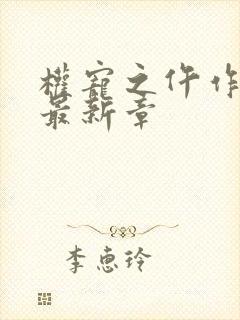 權寵之仵作
最新章
李惠玲